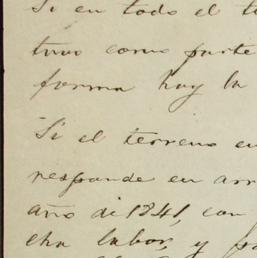 Si en todo el t
tuvo como parte
forma hay la
Si el terreno en
responde en arr
año de 1841, con
cha labor, y pa